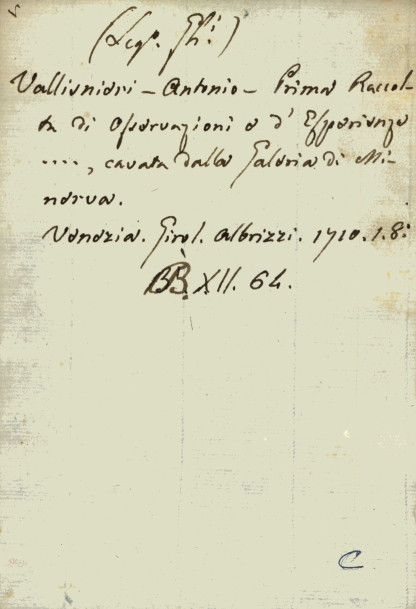 (Legº. Ghi.)
Vallisnieri - Antonio - Prima Raccol-
ta di Osservazioni e d' Esperienze
...., cavata dalla Galeria di Mi-
nerva.
Venezia. Girol. Albrizzi. 1710. 1. 8:
BB. XII. 64.
C